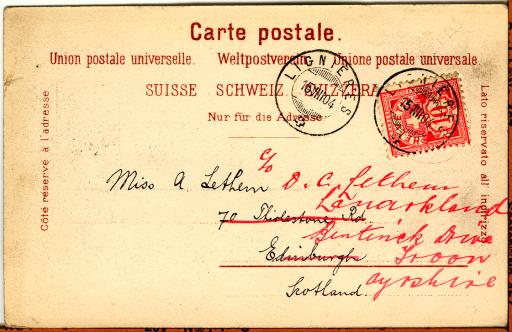 Carte postale.
Union postale universelle. Weltpostverein. Unione postale universale.
SUISSE SCHWEIZ SVIZZERA
Nur für die Adresse
Côté réservé à l'adresse
Lato riservato all' indirizzo
LIGNIÈRES
LIGNIÈRES
10
c/o
Miss A. Lethem D. C. Lethem
Lanarkland
70 Rd
Bentinck Drive
Edinburgh Troon
Scotland. Ayrshire